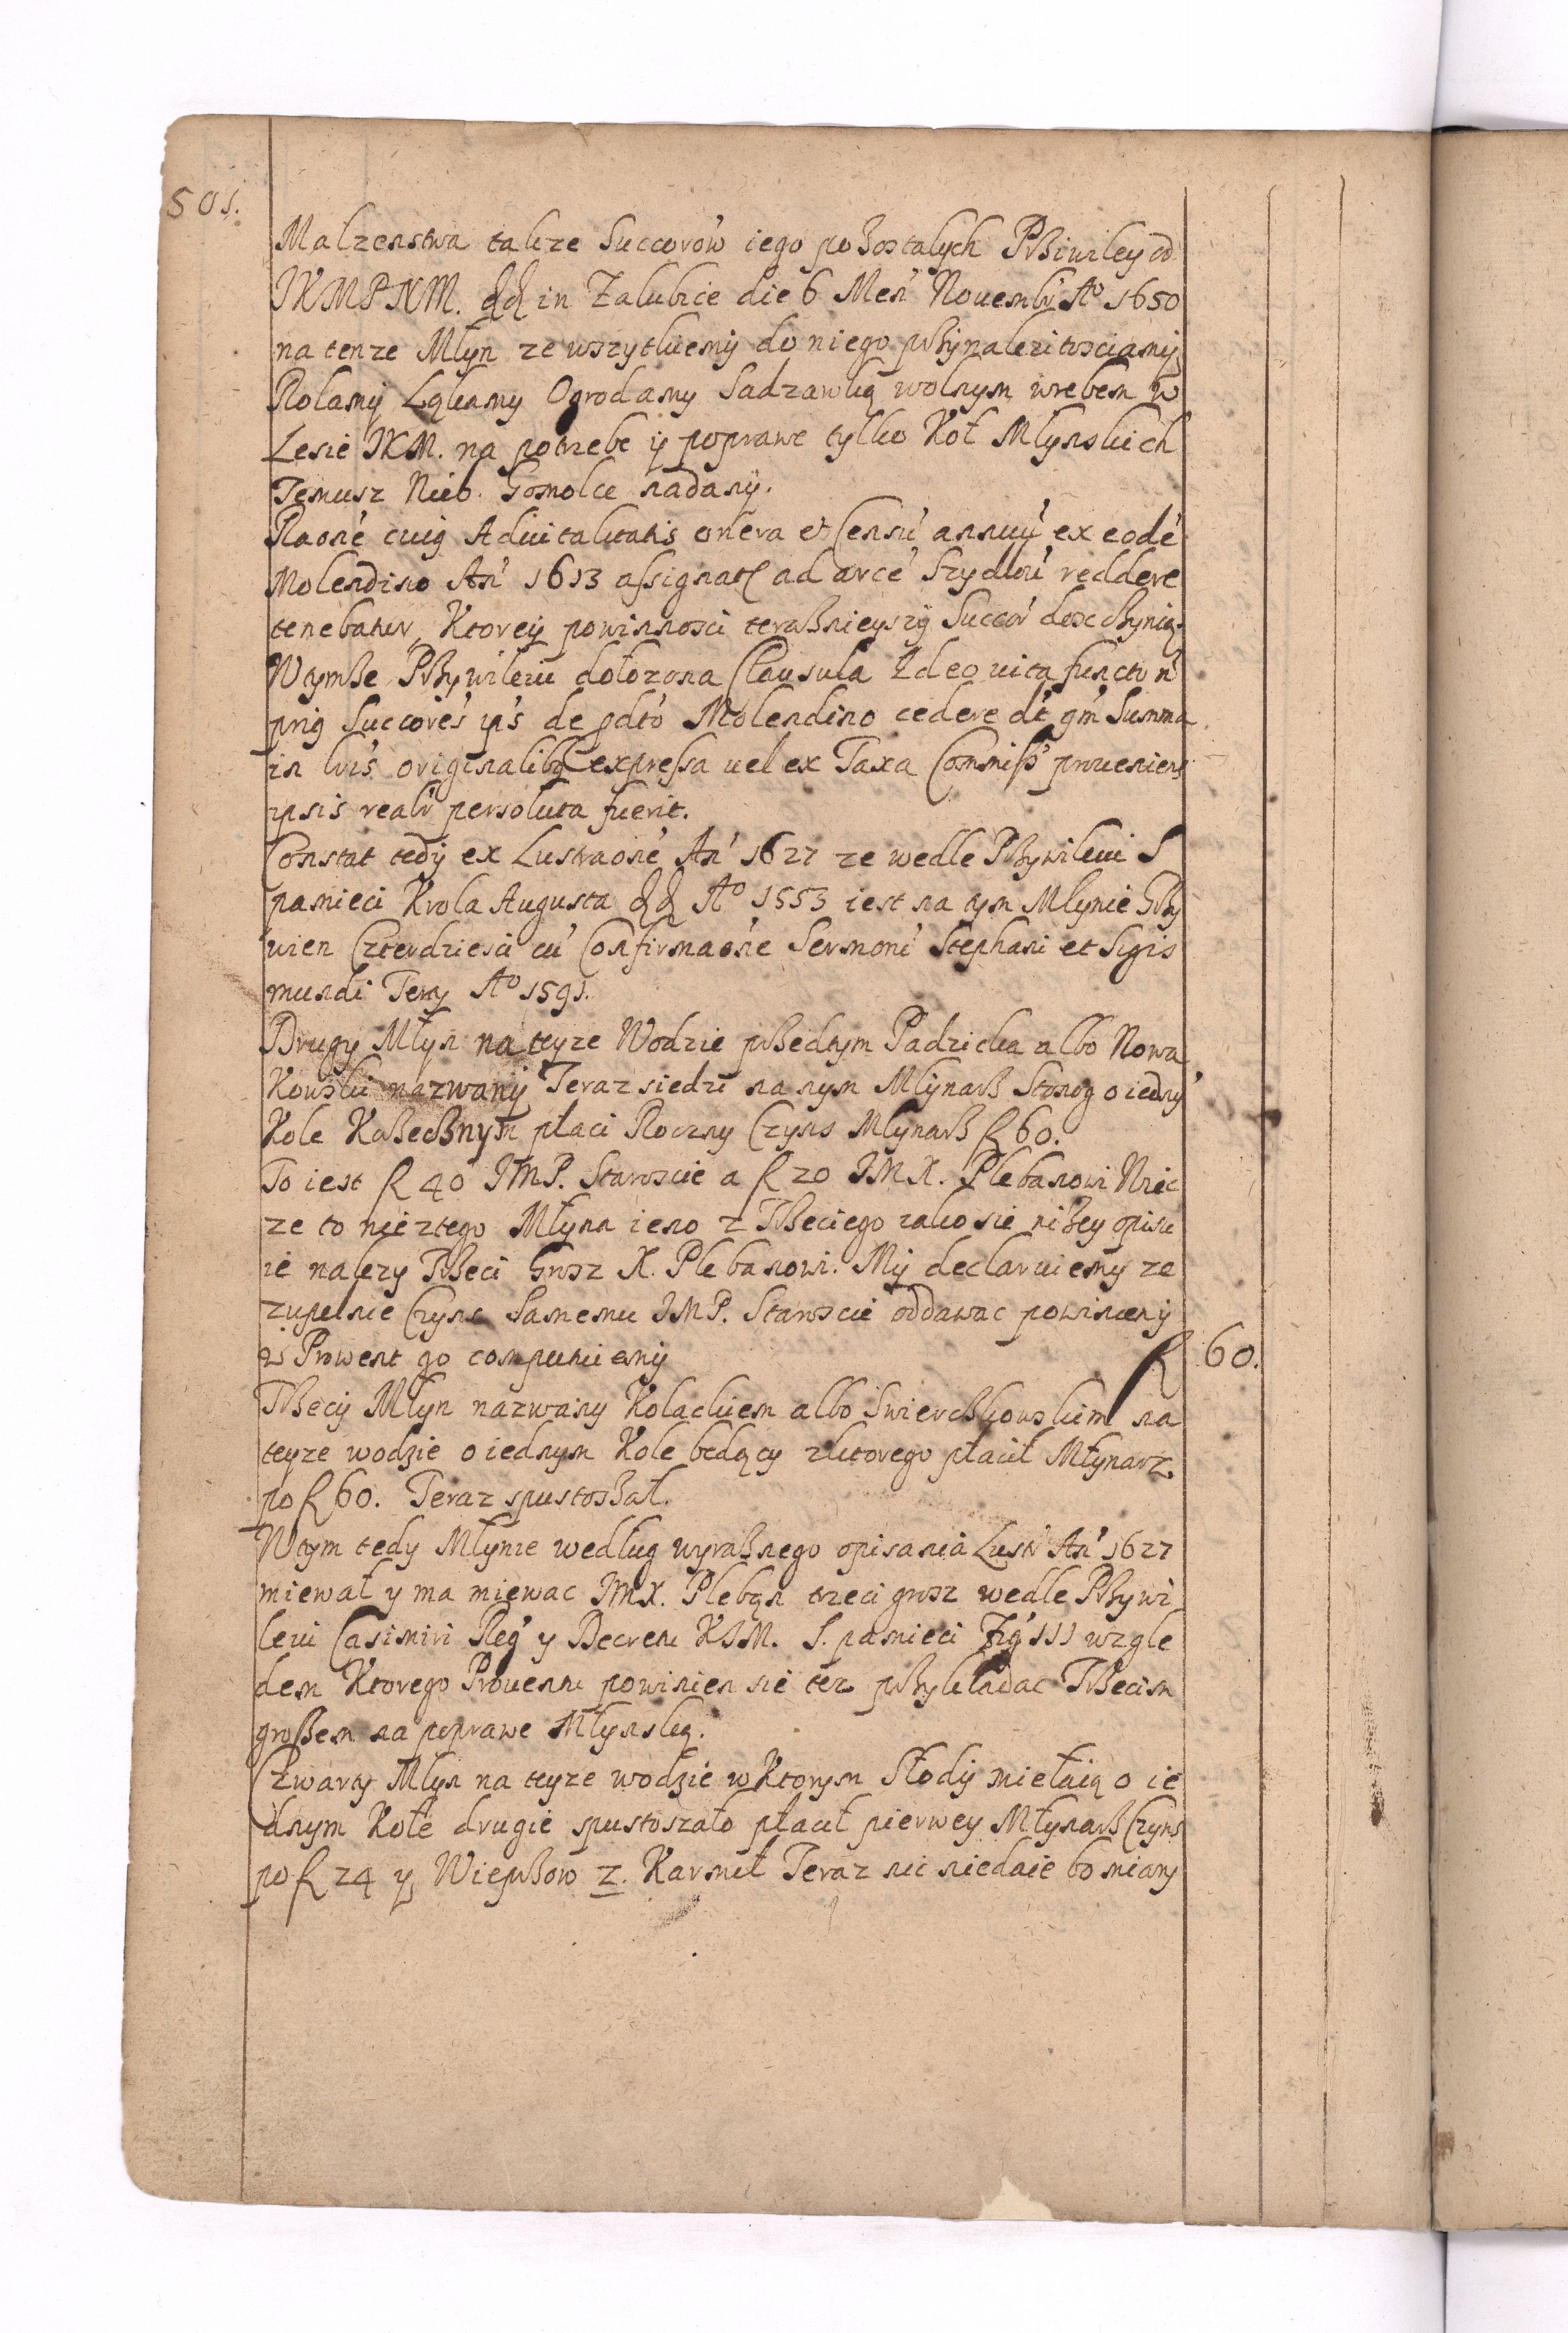 501.
Malzenstwa takze Succorów iego pozostalych Prziwiley od
JKMPNM. dd in Zalubice die 6 Men' Novembr' Aº 1650
na tenze Mlyn ze wszytkiemÿ do niego przynalezitosciamÿ
Rolamÿ Ląkamy Ogrodamy Sadzawką wolnym wrebem w
Lesie JKM. na potrzebe ÿ poprawe tylko Koł Mlynskich
Temusz Nieb. Gomolce nadanÿ.
Raoné cuig Aduitalitatis onera et Censu' annuu' ex eodé
Molendino An' 1613 assignatę ad arcé Szydłou' reddere
tenebatur, Ktoreÿ powinnosci terasznieyszÿ Succór' dosc czynią.
Wtymze Przywileiu dołozona Clausula Ideo vita functo n'
prig Succores' ips' de pdtó Molendino cedere dt' qm' Summa
in lris' originalibq expressa uel ex Taxa Commiss' proueniens
ipsis realr' persoluta fuerit.
Constat tedÿ ex Lustraoné An' 1627 ze wedle Przywileiu S
pamieci Krola Augusta dd Aº 1553 iest na tym Mlynie Grzy
wien Czterdziesci cu' Confirmaóne Sermoni' Stephani et Sigis
mundi Tertÿ Aº 1591.
Drugy Młyn na teyze Wodzie przedtym Padzicka albo Nowa
Kowski nazwanÿ Teraz siedzi na nym Mlynarz Stonog o iedny'
Kole Korzecznym płaci Roczny Czyns Mlynarz fl 60.
To iest fl 40 JMP. Staroscie a fl 20 JMX. Plebanowi Wiec
ze to nie ztego Mlyna ieno z Trzeciego iako sie nizey opisu
ie nalezy Trzeci Grosz X. Plebanowi. Mÿ declaruiemy ze
zupelnie Czynsz Samemu JMP. Staroscie oddawac powinienÿ
w Prowent go computuiemÿ fl 60.
Trzecÿ Mlyn nazwany Kolackiem albo Swierczkowskim na
teyze wodzie o iednym Kole będący zktorego płacił Młynarz
po fl 60. Teraz spustoszał.
Wtym tedy Mlynie wedlug wyrasznego opisania Lustr' An' 1627
miewał y ma miewac JMX. Pleban trzeci grosz wedle Przywi
leiu Casimiri Reg' y Decretu KJM. S. pamieci Zig' III wzgle
dem Ktorego Prouentu powinien sie tez przykladac Trzecim
groszem na poprawe Mlynską.
Czwarty Mlyn na teyze wodzie wKtorym Słodÿ mielaią o ie
dnym Kole drugie spustoszało płacił pierwey Młynarz Czyns
po fl 24 y Wieprzow 2. Karmił Teraz nic niedaie bo miany